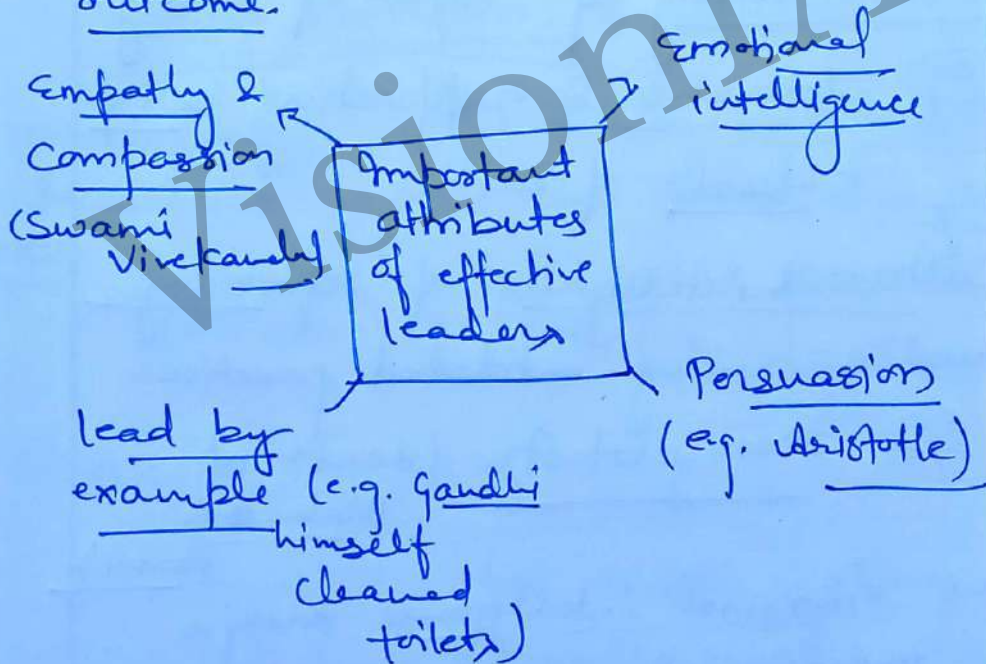 outcome.
Empathy &
Compassion
(Swami
Vivekanda)
Emotional
intelligence
Important
attributes
of effective
leaders
Persuasion
(e.g. Aristotle)
lead by
example (e.g. Gandhi
himself
cleaned
toilets)
VisionIA